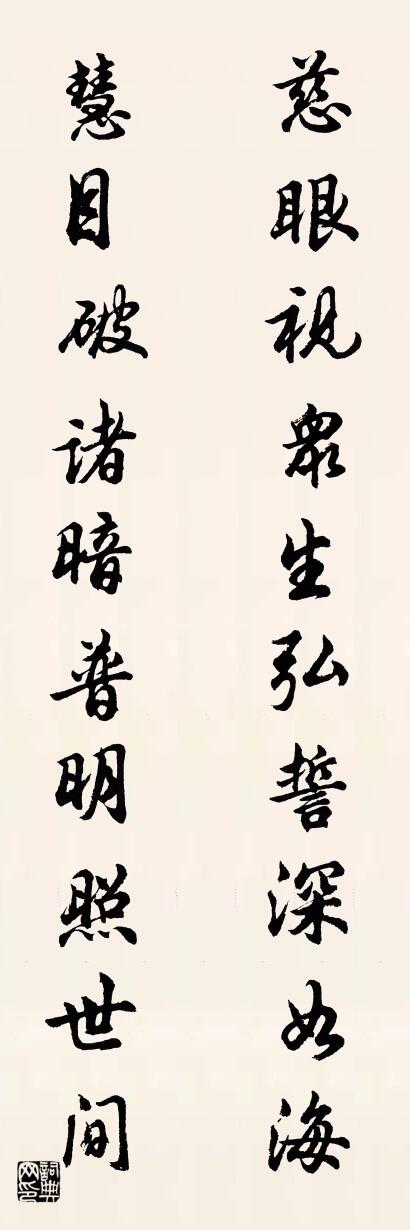 慈眼視衆生弘誓深如海
慧目破诸暗普明照世间
詞典网印